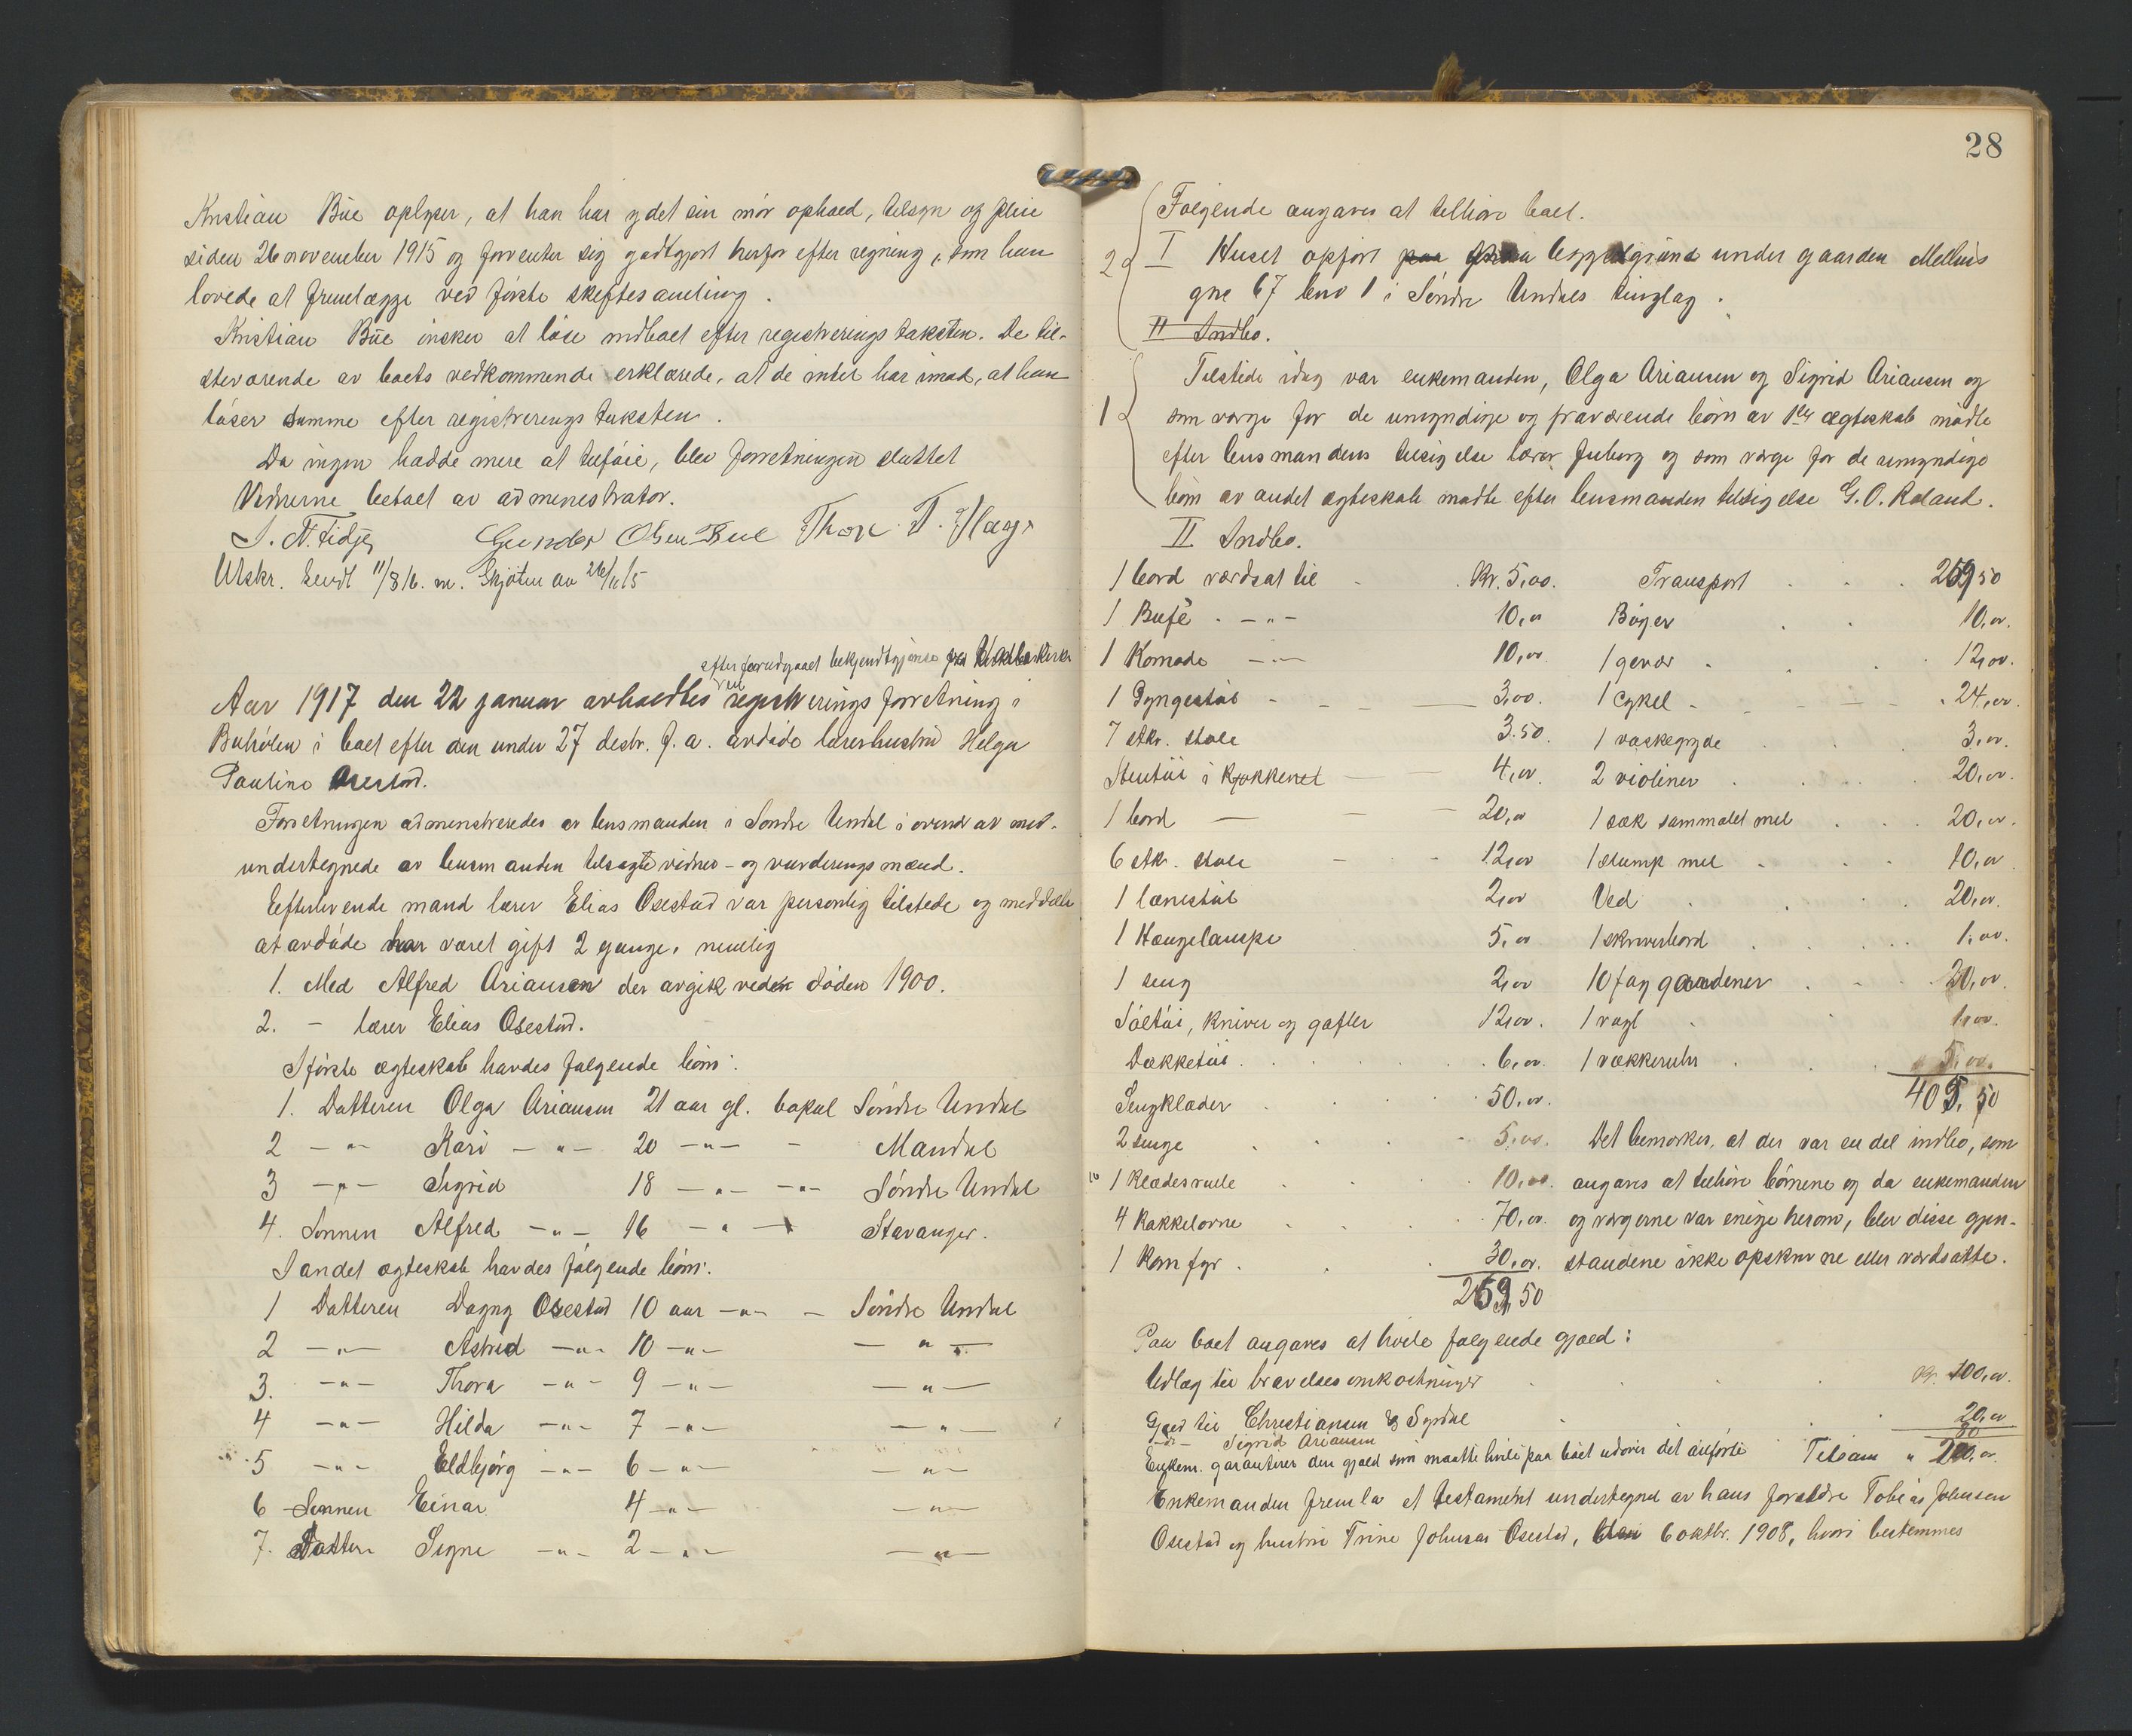 Kristian Bue oplyser, at han har ydet sin mor ophold, tilsyn og pleie
siden 26 november 1915 og forventer sig godtgjort herfor efter regning, som han
lovede at fremlægge ved første skiftesamling.
Kristian Bue ønsker at løse indboet efter registrerings taksten. De til-
steværende av boets vedkommende erklærede, at de intet har imod, at han
løser samme efter registrerings taksten.
Da ingen hadde mere at tilføie, blev forretningen sluttet
Vidnerne betalt av administrator.
Gunder Olsen Bue Thor T.
Utskr. sendt 11/8 16. m. Skjøten av 26/11 15
efter forudgaaet bekjendtgjørelse
Aar 1917 den 22 januar avholdtes registrerings forretning i
Buhølen i boet efter den under 27 desbr. f. a. avdøde lærerhustru Helga
Pauline Osestad.
Forretningen administreredes av lensmanden i Søndre Undal i overvær av med-
undertegnede av lensmanden tilsagte vidner- og vurderingsmænd.
Efterlevende mand lærer Elias Osestad var personlig tilstede og meddelte
at avdøde har været gift 2 gange, nemlig
1. Med Alfred Ariansen der avgik ved døden 1900.
2. - lærer Elias Osestad.
I første ægteskab havdes følgende børn:
1. Datteren Olga Ariansen 21 aar gl. bopæl Søndre Undal
2 -"- Kari -"- 20 -"- - Mandal
3 -"- Sigrid 18 -"- -"- Søndre Undal
4. Sønnen Alfred -"- 16 -"- Stavanger.
I andet ægteskab havdes følgende børn:
1 Datteren Dagny Osestad 10 aar -"- - Søndre Undal
2 -"- Astrid -"- 10 -"- -"-
3. -"- Thora -"- 9 -"- -"-
4 -"- Hilda -"- 7 -"- -"-
5 -"- Eldbjørg -"- 6 -"- -"-
6 Sønnen Einar 4 -"- -"-
7. Datter Signe -"- 2 -"- -"-
28
Følgende angaves at tilhøre boet.
2 I Huset opført paa bygselgrund under gaarden Melhus
gno 67 bno 1 i Søndre Undals tinglag.
II Indbo.
Tilstede idag var enkemanden, Olga Ariansen og Sigrid Ariansen og
1 som værge for de umyndige og fraværende børn av 1ste ægteskab mødte
efter lensmandens tilsigelse lærer Fuborg og som værge for de umyndige
børn av andet ægteskab mødte efter lensmanden tilsigelse G. O. Røland.
II Indbo.
1 bord værdsat til Kr. 5,00.
1 Bufè - " - 10,00
1 Komode - " - 10,00.
1 Gyngestol - 3,00.
7 stkr. stole 3.50.
Stentøi i kjøkkenet 4,00.
1 bord 20,00
6 stk. stole 12,00
1 lænestol 2,00
1 Hængelampe 5,00
1 seng 2,00
Søltøi, kniver og gafler 12,00.
Dækketøi 6,00.
Sengklæder 50,00.
2 senge 5,00.
1 klædesrulle 10,00.
4 kakkelovne 70,00.
1 Komfyr 30,00.
259,50
Transport 259,50
Bøger 10,00.
1 gevær 12,00.
1 cykel 24,00.
1 vaskegryde 3,00.
2 violiner 20,00.
1 sæk sammalet mel 20,00.
1 slump mel 10,00
Ved 20,00.
1 skriverbord 1,00.
10 fag gardener 20,00.
1 vegt 1,00.
1 vækkeruhr 5,00.
405,50
Det bemerkes, at der var en del indbo, som
angaves at tilhøre børnene og da enkemanden
og værgerne var enige herom, blev disse gjen-
standene ikke opskrevne eller værdsatte.
Paa boet angaves at hvile følgende gjæld:
Utlæg til bravelsesomkostninger Kr. 100,00.
Gjæld til Christiansen & Syrdal 20,00
-"- Sigrid Ariansen 80
Enkem. garanterer den gjæld som maatte hvile paa boet utover det anførte Tilsam " 200,00.
Enkemanden fremla et testament undertegnet av hans forældre Tobias Johnsen
Osestad og hustru Trine Johnsen Osestad, 6 oktbr. 1908, hvori bestemmes